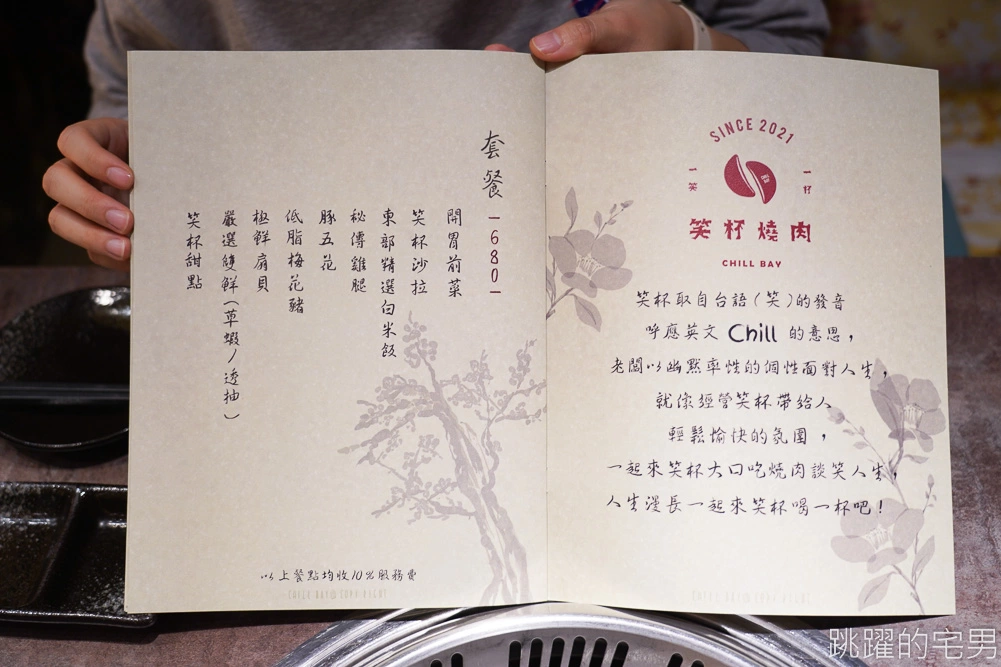 套餐
—680—
開胃前菜
笑杯沙拉
東部精選白米飯
秘傳雞腿
豚五花
低脂梅花豬
極鮮扇貝
嚴選雙鮮(草蝦/透抽)
笑杯甜點
以上餐點均收10%服務費
SINCE 2021
一笑
一杯
笑杯燒肉
CHILL BAY
笑杯取自台語(笑)的發音
呼應英文 Chill 的意思,
老闆以幽默率性的個性面對人生,
就像經營笑杯帶給人
輕鬆愉快的氛圍,
一起來笑杯大口吃燒肉談笑人生,
人生漫長一起來笑杯喝一杯吧!
跳躍的宅男